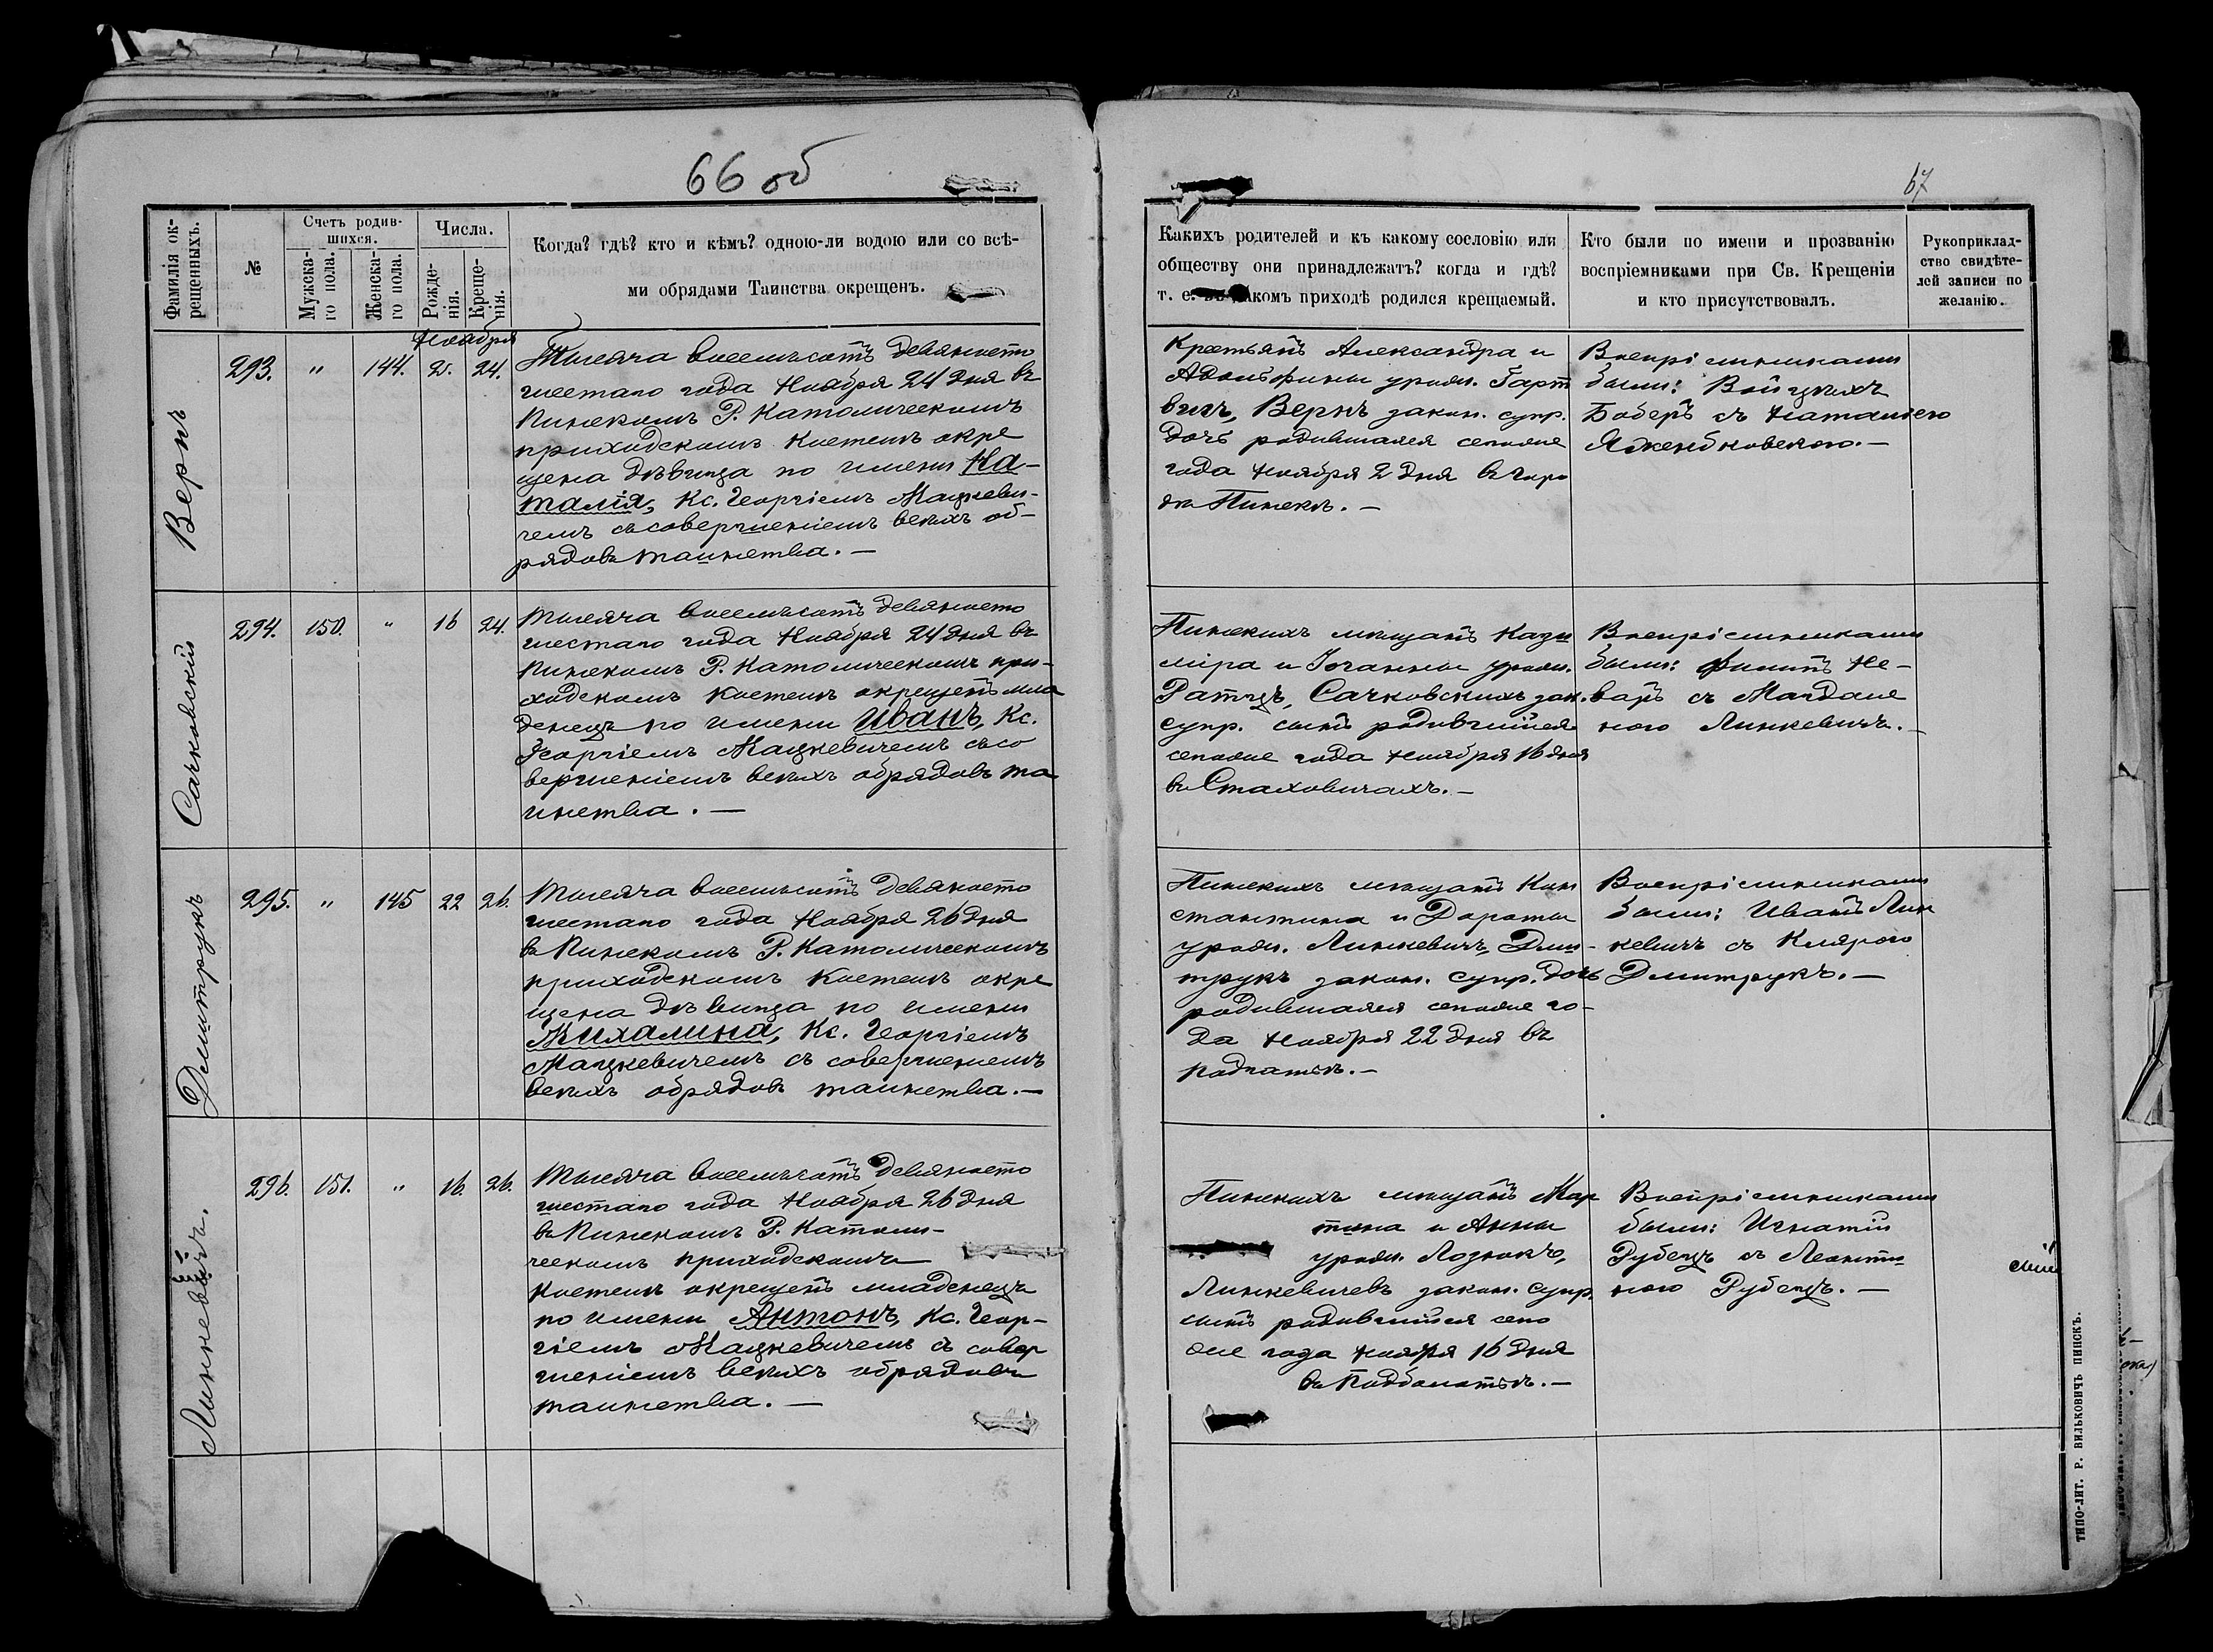 66 об
67
Фамилія ок-
рещенныхъ.
№
Счетъ родив-
шихся.
Мужска-
го пола.
Женска-
го пола.
Числа.
Рожде-
нія.
Креще-
нія.
Когда? гдѣ? кто и кѣмъ? одною-ли водою или со всѣ-
ми обрядами Таинства окрещенъ.
Какихъ родителей и къ какому сословію или
обществу они принадлежатъ? когда и гдѣ?
т. е. въ какомъ приходѣ родился крещаемый.
Кто были по имени и прозванію
воспріемниками при Св. Крещеніи
и кто присутствовалъ.
Рукоприклад-
ство свидѣте-
лей записи по
желанію.
Вернъ
293. " 144. 2. 24.
Ноября
Тысяча восемьсотъ девяносто
шестаго года Ноября 24 дня въ
Пинскомъ Р. Католическомъ
приходскомъ костелѣ окре
щена дѣвица по имени На-
талія, Кс. Георгіемъ Мацкеви-
чемъ съ совершеніемъ всѣхъ об-
рядовъ таинства. —
Крестьянъ Александра и
Адольфины урожд. Гарт
вигъ, Вернъ закон. супр.
дочь родившаяся сего же
года Ноября 2 дня въ горо
дѣ Пинскѣ. —
Воспріемниками
были: Войцехъ
Боберъ съ Наталіею
Яженбковскою. —
Сачковскій
294. 150. " 16 24.
Тысяча восемьсотъ девяносто
шестаго года Ноября 24 дня въ
Пинскомъ Р. Католическомъ при-
ходскомъ костелѣ окрещенъ мла
денецъ по имени Иванъ, Кс.
Георгіемъ Мацкевичемъ съ со
вершеніемъ всѣхъ обрядовъ та
инства. —
Пинскихъ мѣщанъ Кази
міра и Іоганны урожд.
Ратъцъ, Сачковскихъ зак.
супр. сынъ родившійся
сего же года Ноября 16 дня
въ Стаховичахъ. —
Воспріемниками
были: Филипъ Не-
варъ съ Магдале
ною Линкевичъ. —
Дмитрукъ
295. " 145 22 26.
Тысяча восемьсотъ девяносто
шестаго года Ноября 26 дня
въ Пинскомъ Р. Католическомъ
приходскомъ костелѣ окре
щена дѣвица по имени
Михалина, Кс. Георгіемъ
Мацкевичемъ съ совершеніемъ
всѣхъ обрядовъ таинства. —
Пинскихъ мѣщанъ Кон
стантина и Дороты
урожд. Линкевичъ, Дми-
трукъ закон. супр. дочь
родившаяся сего же го-
да Ноября 22 дня въ
Воспріемниками
были: Иванъ Лин
кевичъ съ Клярою
Дмитрукъ. —
Линкевичъ.
296. 151. " 16. 26.
Тысяча восемьсотъ девяносто
шестаго года Ноября 26 дня
въ Пинскомъ Р. Католи-
ческомъ приходскомъ
костелѣ окрещенъ младенецъ
по имени Антонъ, Кс. Геор-
гіемъ Мацкевичемъ съ совер
шеніемъ всѣхъ обрядовъ
таинства. —
Пинскихъ мѣщанъ Мар
тина и Анны
урожд. Лознюкъ,
Линкевичевъ закон. супр.
сынъ родившійся сего
же года Ноября 16 дня
въ Подболотьѣ. —
Воспріемниками
были: Игнатій
Рубецъ съ Леонти
ною Рубецъ. —
ТИПО-ЛИТ. Р. ВИЛЬКОВИЧЪ ПИНСКЪ.